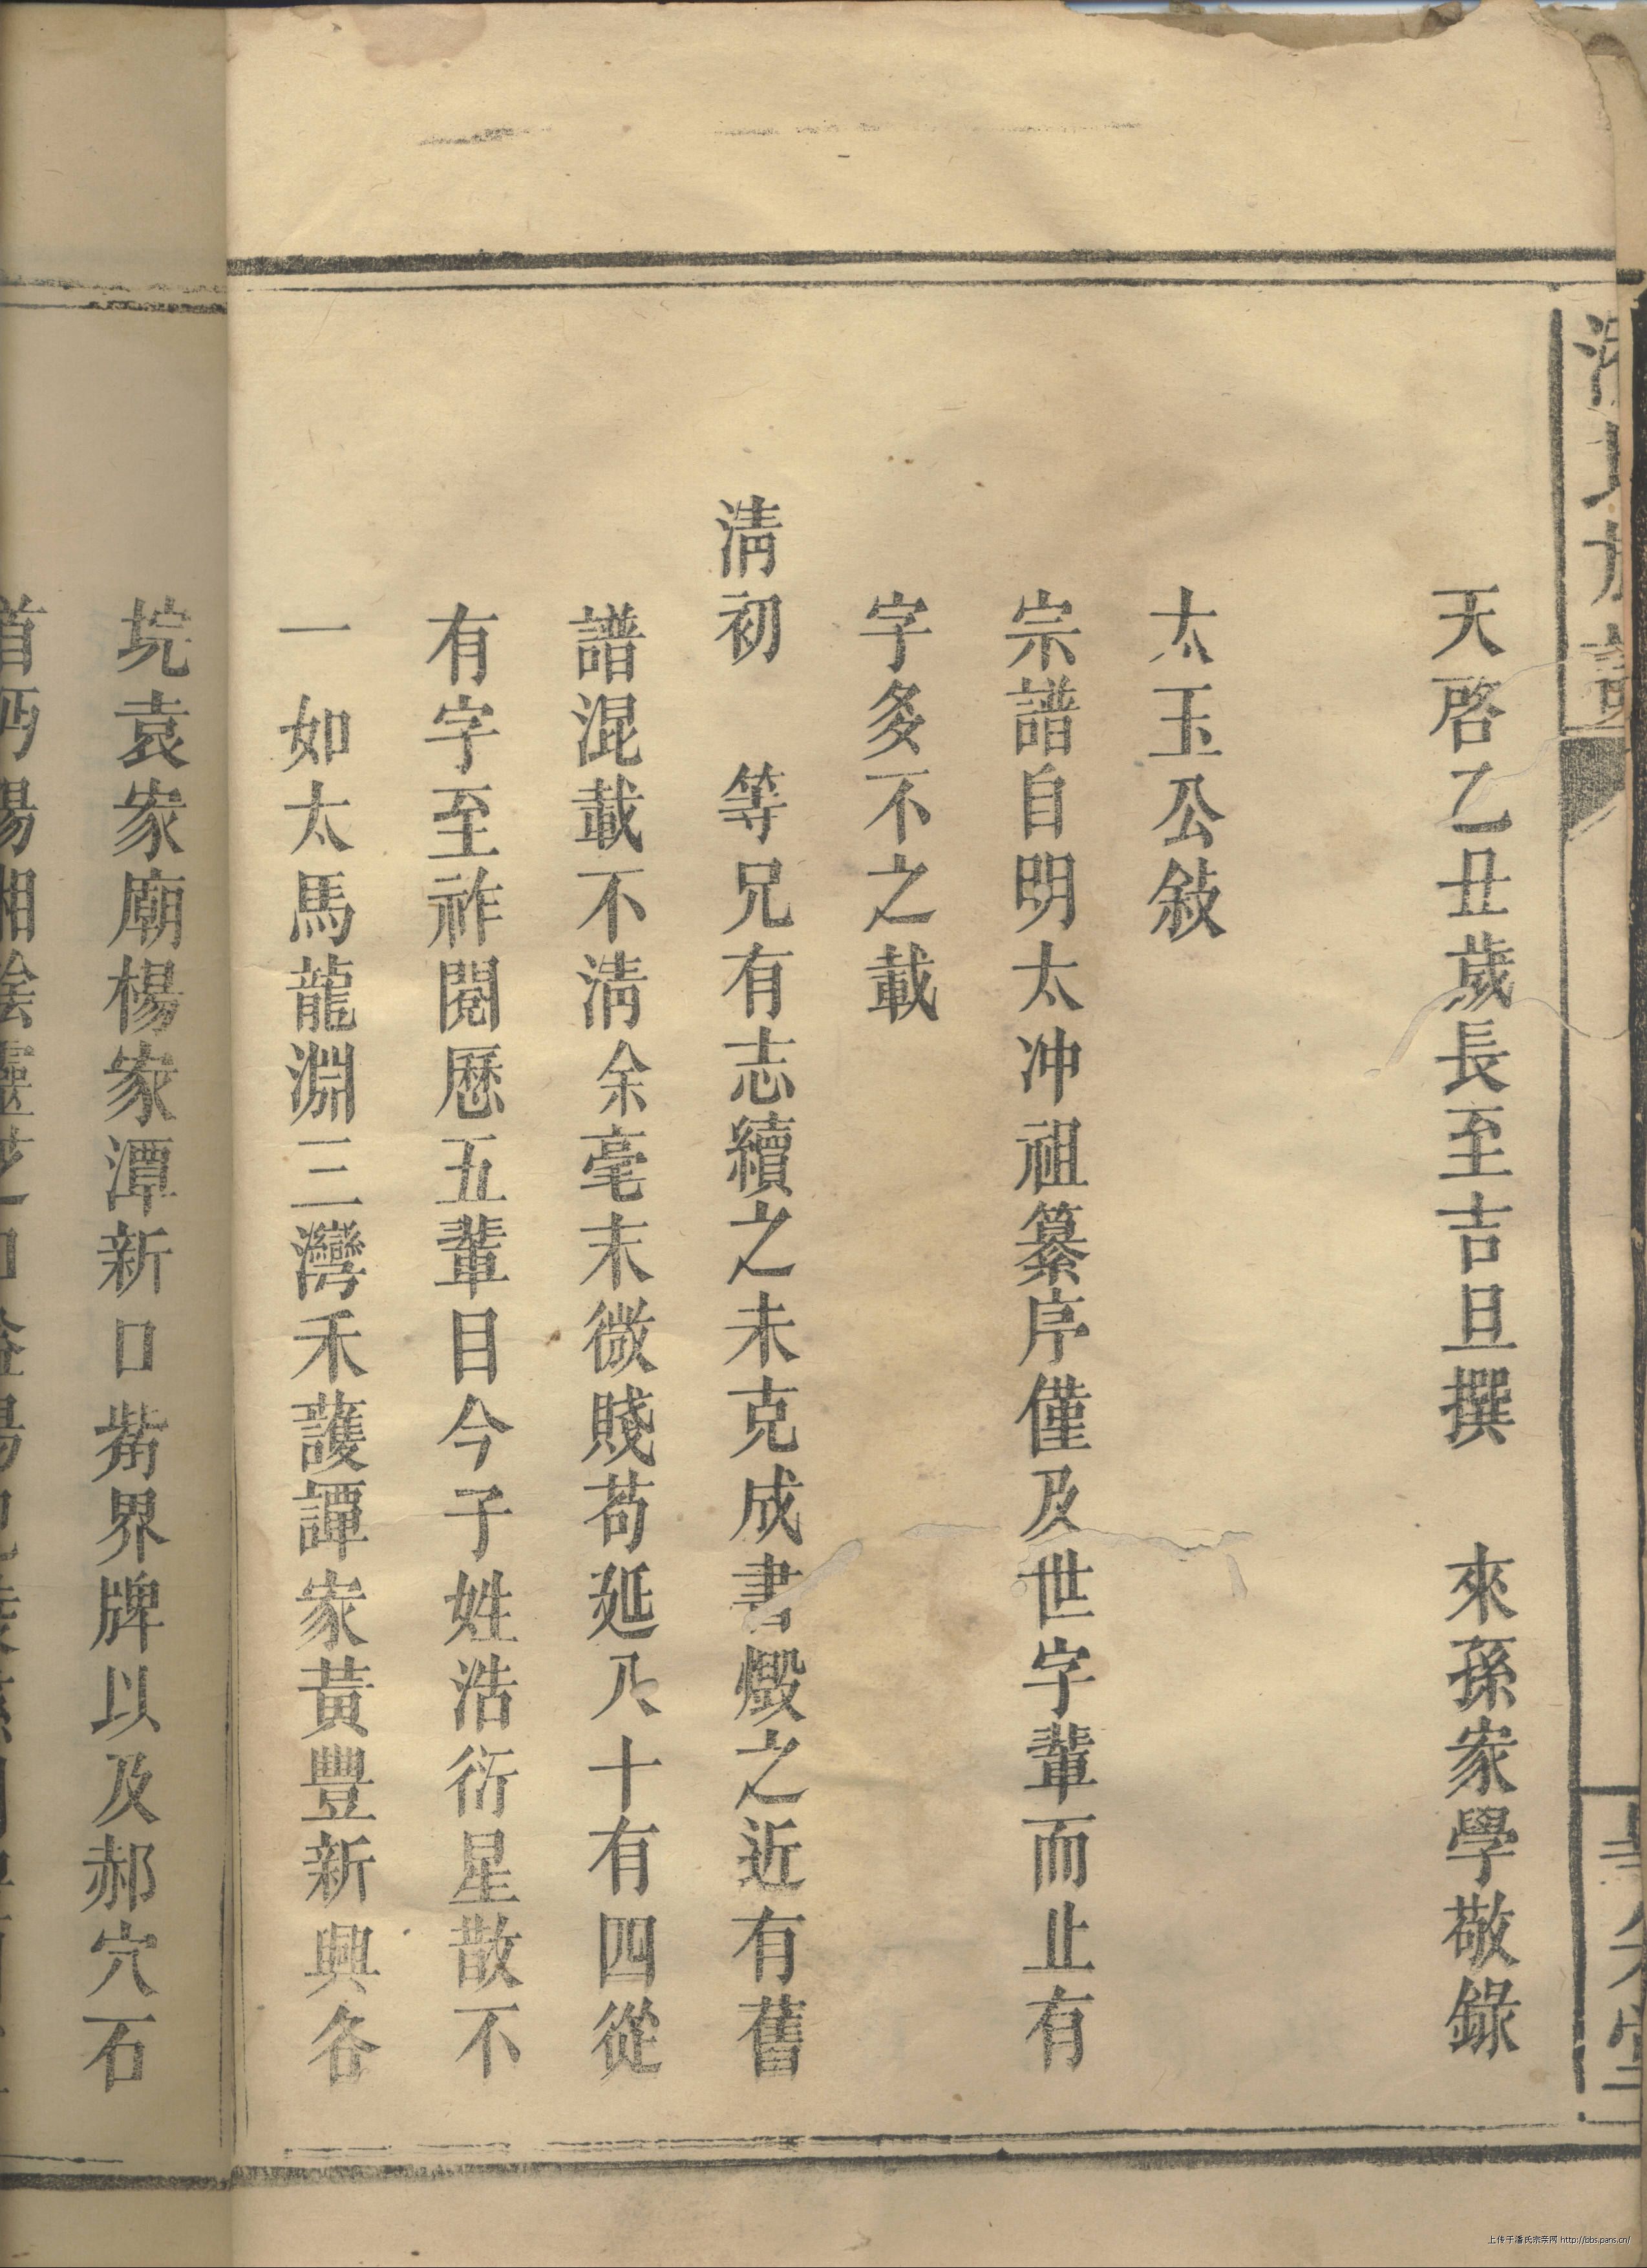 天啓乙丑歲長至吉旦撰　來孫家學敬錄
太玉公敍
宗譜自明太冲祖纂序僅及世字輩而止有
字多不之載
淸初　等兄有志續之未克成書燬之近有舊
譜混載不淸余毫末微賤苟延八十有四從
有字至祚閱歷五輩目今子姓浩衍星散不
一如太馬龍淵三灣禾護譚家黃豐新興各
垸袁家廟楊家潭新口觜界牌以及郝穴石
首沔陽湘陰
上传于潘氏宗亲网 http://bbs.pans.cn/